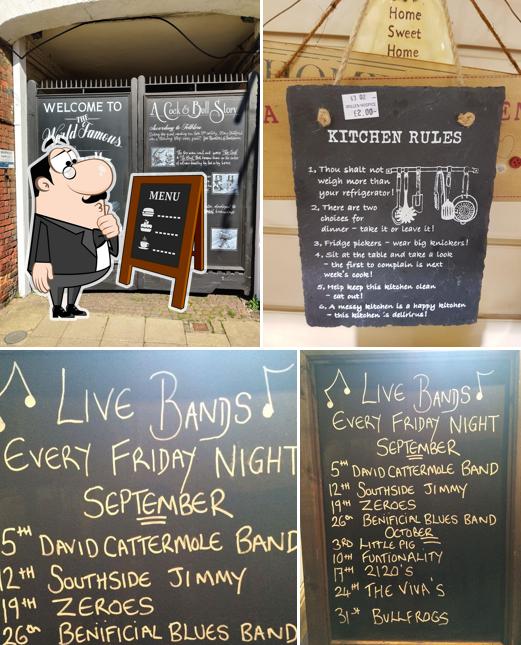 WELCOME TO
THE
World Famous
A Cock & Bull Story
According to Folklore
MENU
Home
Sweet
Home
£2.00
KITCHEN RULES
1, Thou shalt not
weigh more than
your refrigerator!
2, There are two
choices for
dinner - take it or leave it!
3, Fridge pickers - wear big knickers!
4, Sit at the table and take a look
- the first to complain is next
week's cook!
5, Help keep this kitchen clean
- eat out!
6, A messy kitchen is a happy kitchen
- this kitchen is delirius!
LIVE BANDS
EVERY FRIDAY NIGHT
SEPTEMBER
5TH DAVID CATTERMOLE BAND
12TH SOUTHSIDE JIMMY
19TH ZEROES
26TH BENIFICIAL BLUES BAND
LIVE BANDS
EVERY FRIDAY NIGHT
SEPTEMBER
5TH DAVID CATTERMOLE BAND
12TH SOUTHSIDE JIMMY
19TH ZEROES
26TH BENIFICIAL BLUES BAND
OCTOBER
3RD LITTLE PIG
10TH FUNTIONALITY
17TH 2120'S
24TH THE VIVA'S
31ST BULLFROGS